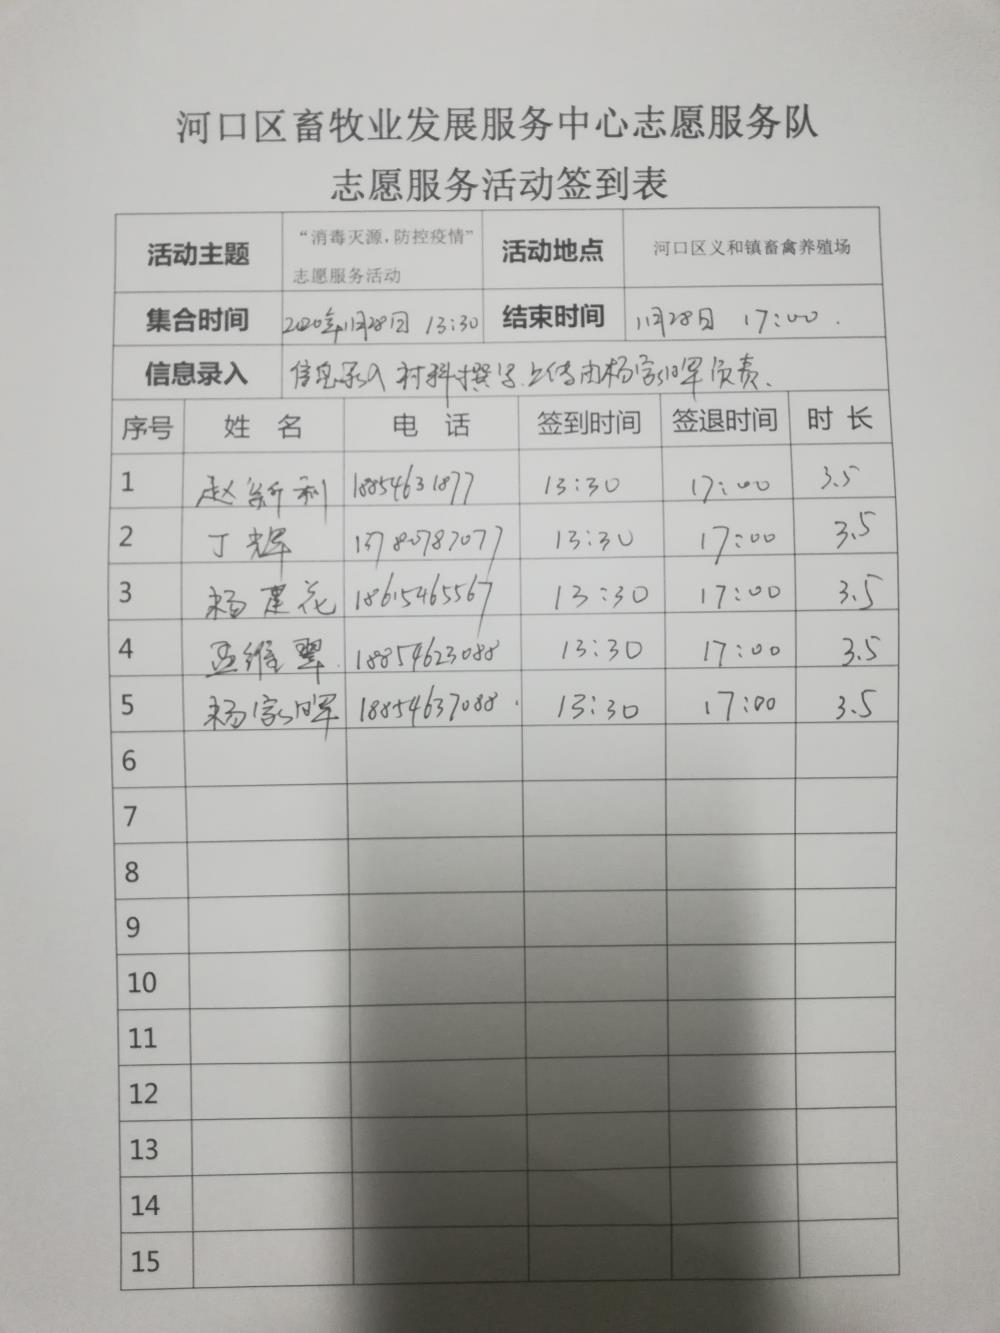 河口区畜牧业发展服务中心志愿服务队
志愿服务活动签到表
活动主题 “消毒灭源,防控疫情” 志愿服务活动 活动地点 河口区义和镇畜禽养殖场
集合时间 2020年11月28日 13:30 结束时间 11月28日 17:00.
信息录入 信息录入 材料撰写.上传由杨家晖负责.
序号 姓 名 电 话 签到时间 签退时间 时 长
1 赵新利 18854631877 13:30 17:00 3.5
2 丁辉 13780787077 13:30 17:00 3.5
3 杨建花 18615465567 13:30 17:00 3.5
4 孟维翠 18854623088 13:30 17:00 3.5
5 杨家晖 18854637088 13:30 17:00 3.5
6
7
8
9
10
11
12
13
14
15